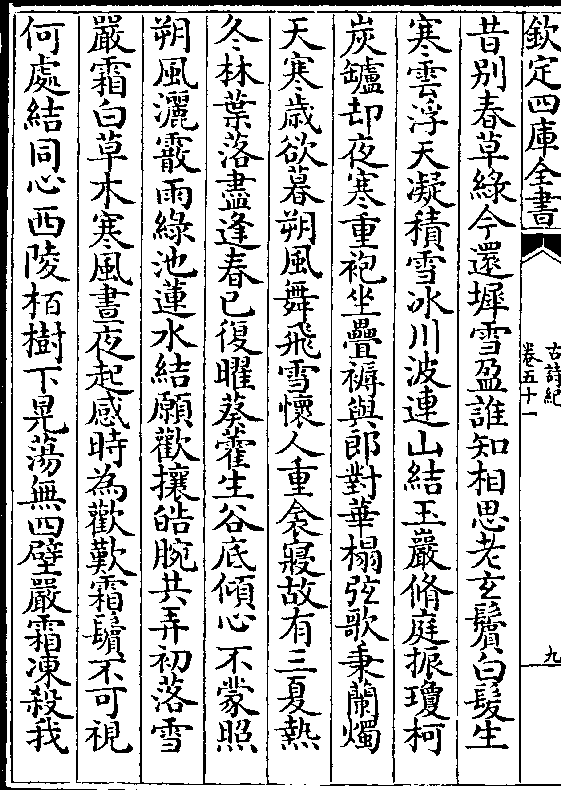 欽定四庫全書
古詩紀
卷五十一
九
昔别春草綠今還墀雪盈誰知相思老玄鬢白髮生
寒雲浮天凝積雪冰川波連山結玉巖脩庭振瓊柯
炭鑪却夜寒重袍坐疊褥與郎對華榻弦歌秉蘭燭
天寒歲欲暮朔風舞飛雪懷人重衾寢故有三夏熱
冬林葉落盡逢春已復曜葵藿生谷底傾心不蒙照
朔風灑霰雨綠池蓮水結願歡攘皓腕共弄初落雪
嚴霜白草木寒風晝夜起感時為歡歎霜鬢不可視
何處結同心西陵栢樹下晃蕩無四壁嚴霜凍殺我